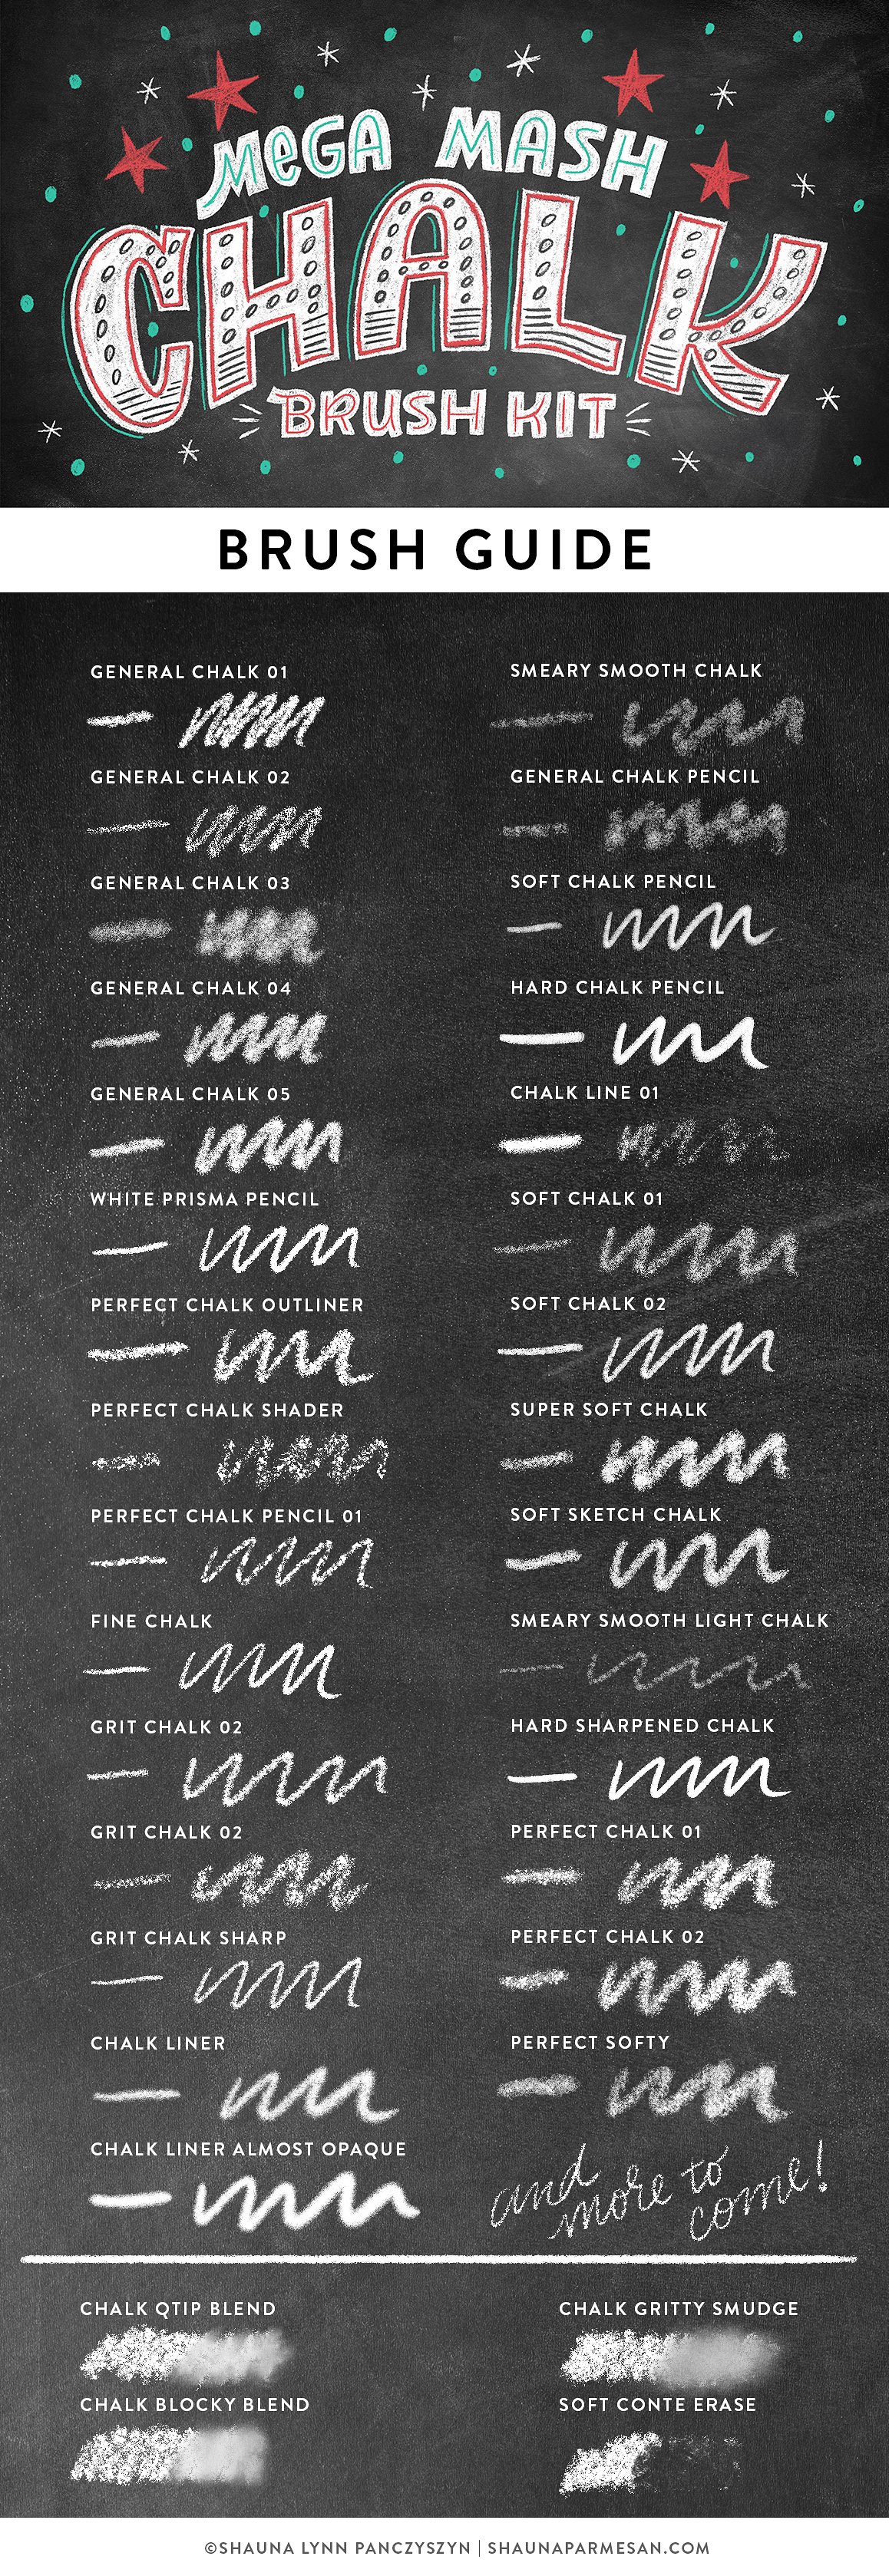 MeGA MASH
CHALK
BRUSH KIT
BRUSH GUIDE
GENERAL CHALK 01
GENERAL CHALK 02
GENERAL CHALK 03
GENERAL CHALK 04
GENERAL CHALK 05
WHITE PRISMA PENCIL
PERFECT CHALK OUTLINER
PERFECT CHALK SHADER
PERFECT CHALK PENCIL 01
FINE CHALK
GRIT CHALK 02
GRIT CHALK 02
GRIT CHALK SHARP
CHALK LINER
CHALK LINER ALMOST OPAQUE
SMEARY SMOOTH CHALK
GENERAL CHALK PENCIL
SOFT CHALK PENCIL
HARD CHALK PENCIL
CHALK LINE 01
SOFT CHALK 01
SOFT CHALK 02
SUPER SOFT CHALK
SOFT SKETCH CHALK
SMEARY SMOOTH LIGHT CHALK
HARD SHARPENED CHALK
PERFECT CHALK 01
PERFECT CHALK 02
PERFECT SOFTY
and more to come!
CHALK QTIP BLEND
CHALK BLOCKY BLEND
CHALK GRITTY SMUDGE
SOFT CONTE ERASE
©SHAUNA LYNN PANCZYSZYN | SHAUNAPARMESAN.COM